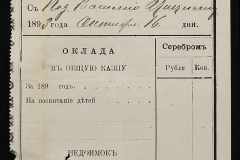 Съ
189 года Октября 16 дня.
ОКЛАДА
ВЪ ОБЩУЮ КАЗНУ
Серебромъ.
Рубли Коп.
За 189 годъ
На воспитаніе дѣтей
НЕДОИМОКЪ